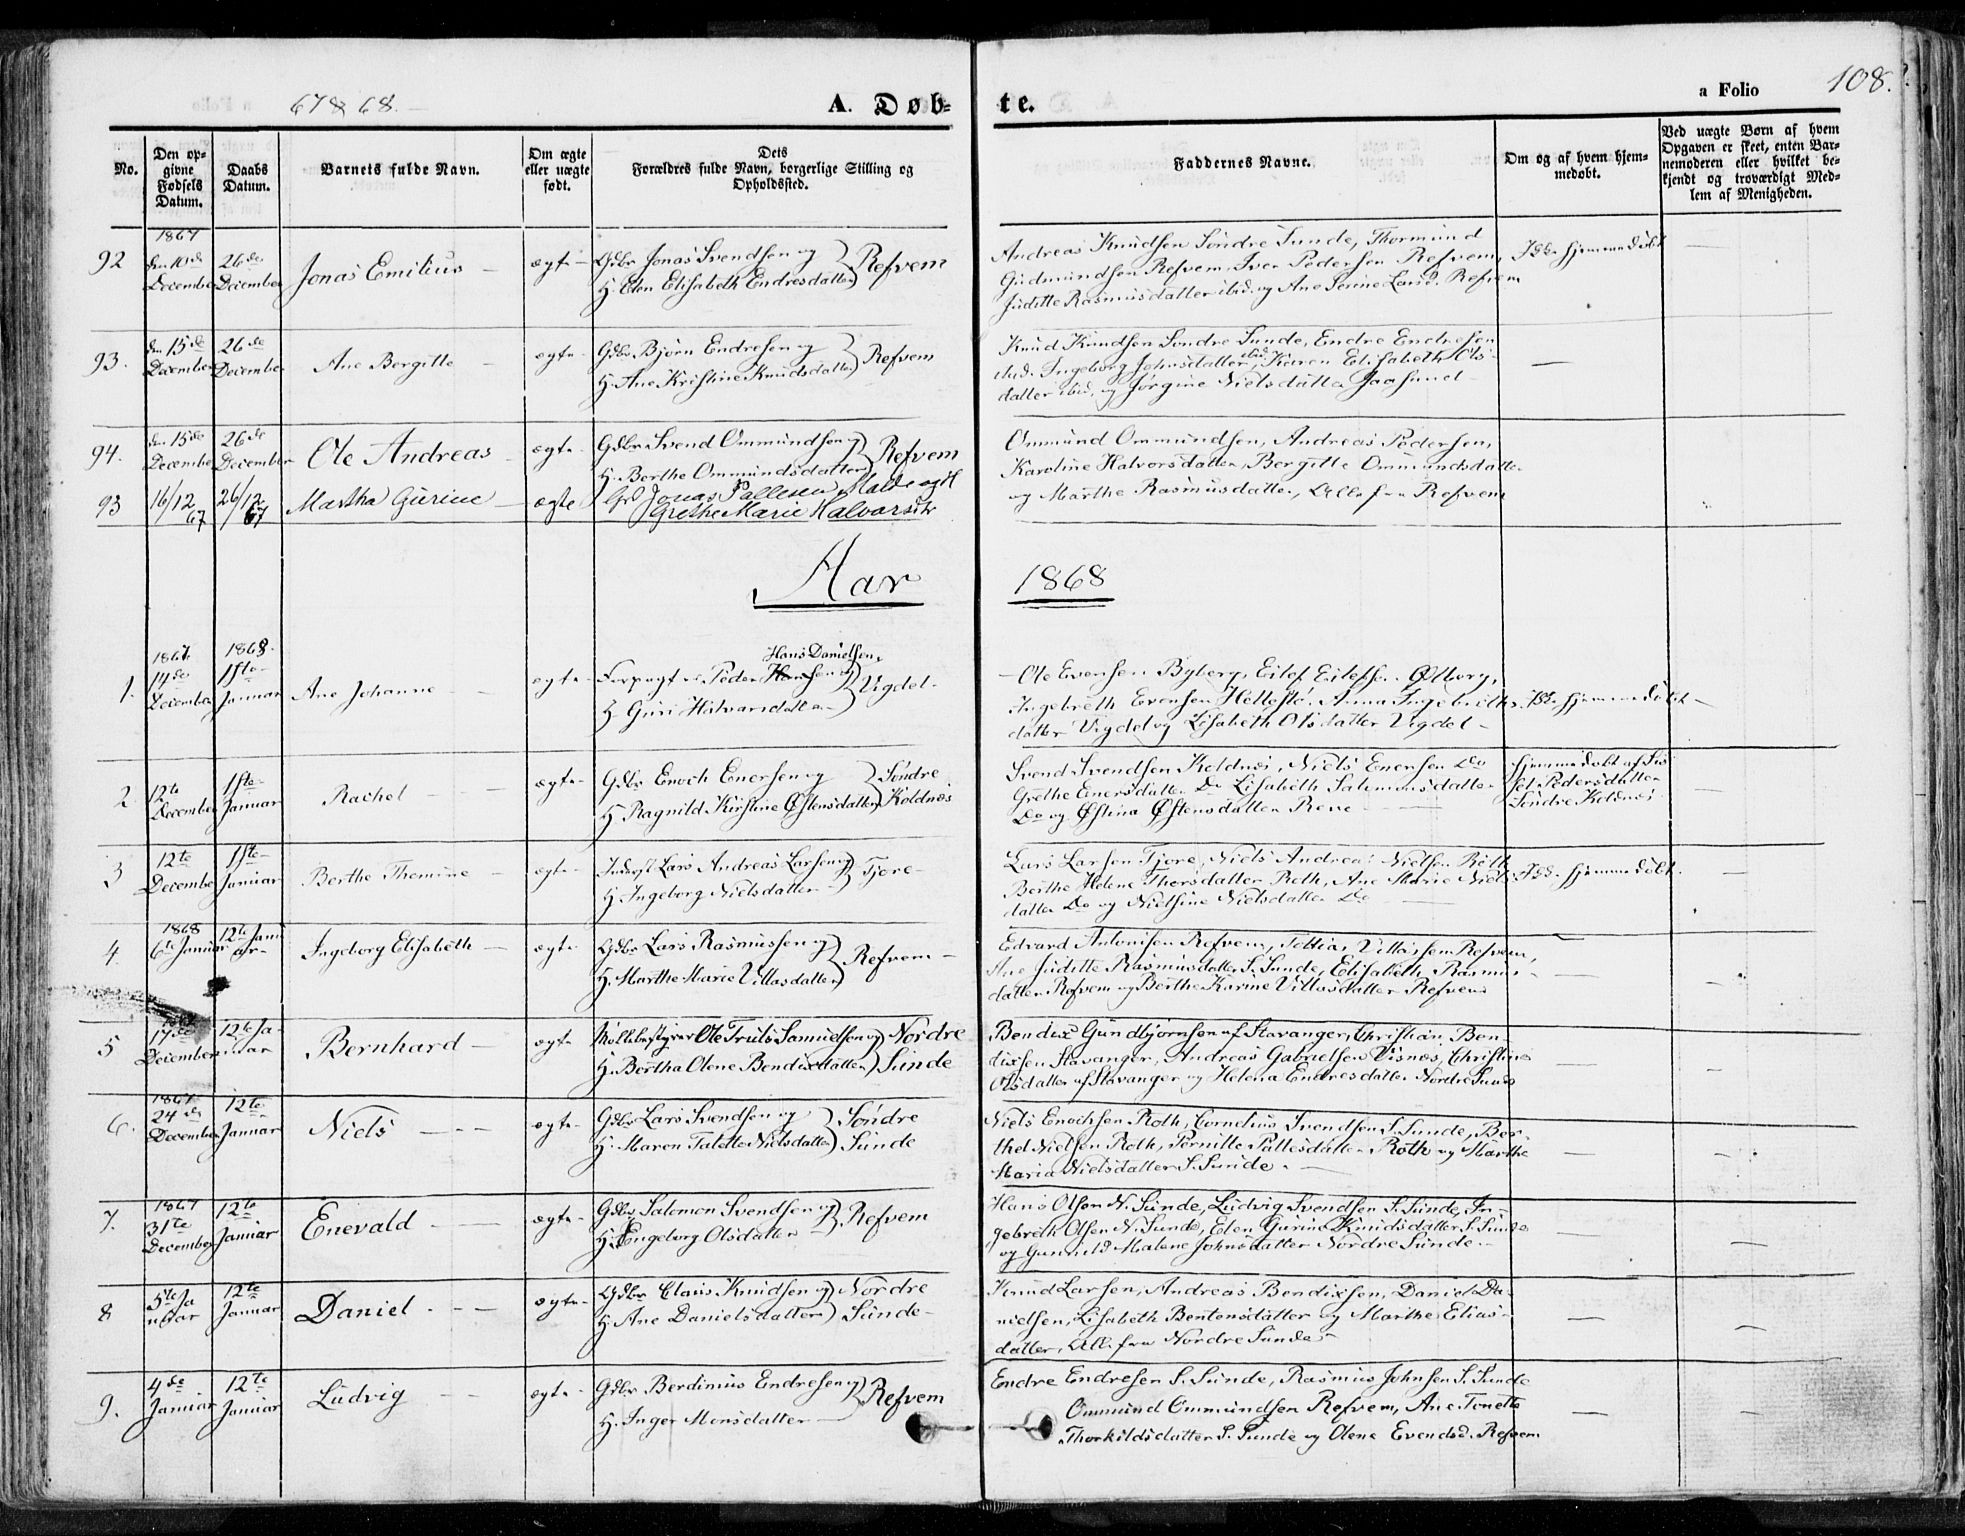 67 & 68.
A. Døb-
te.
a Folio
108.
No.
Den op-
givne
Fødsels
Datum.
Daabs
Datum.
Barnets fulde Navn.
Om ægte
eller uægte
født.
Dets
Forældres fulde Navn, borgerlige Stilling og
Opholdssted.
Faddernes Navne.
Om og af hvem hjem-
medøbt.
Ved uægte Børn af hvem
Opgaven er skeet, enten Bar-
nemoderen eller hvilket be-
kjendt og troværdigt Med-
lem af Menigheden.
92
1867
den 10de
December
26de
December
Jonas Emilius
ægte
Gdbr Jonas Svendsen og
H. Elen Elisabeth Endresdatter
Refvem
Andreas Knudsen Søndre Sunde, Thormund
Gudmundsen Refvem, Iver Pedersen Refvem,
Juditte Rasmusdatter ibid. og Ane Serine Larsd. Refvem
Ikke hjemmedøbt
93.
den 15de
December
26de
December
Ane Bergitte
ægte
Gdbr Bjørn Endresen og
H. Ane Kristine Knudsdatter
Refvem
Knud Knudsen Søndre Sunde, Endre Endresen
ibid. Ingeborg Johnsdatter ibid. Karen Elisabeth Ols-
datter ibid. og Jorgine Nielsdatter Jaasund
94.
den 15de
December
26de
December
Ole Andreas
ægte
Gdbr Svend Ommundsen og
H. Berthe Ommundsdatter
Refvem
Ommund Ommundsen, Andreas Pedersen,
Karoline Halvorsdatter, Bergitte Ommundsdatter
og Marthe Rasmusdatter, Alle fra Refvem
93
16/12 67
26/12 67
Martha Gurine
ægte
Gr Jonas Pallesen Malde og H
Grethe Marie Halvorsdtr
Aar 1868
1.
1867
14de
December
1868
1ste
Januar
Ane Johanne
ægte
Hans Danielsen
Forpagter Peder Hansen og
H. Guri Halvorsdatter
Vigdel
Ole Evensen Byberg, Eilef Eilefsen Ølberg,
Ingebreth Evensen Hellestø, Anna Ingebreths-
datter Vigdel og Lisabeth Olsdatter Vigdel
Ikke hjemmedøbt
2
12te
December
1ste
Januar
Rachel
ægte
Gdbr Enoch Enersen og
H. Ragnild Kirstine Østensdatter
Søndre
Koldnes
Svend Svendsen Koldnes, Niels Enersen Do
Grethe Enersdatter Do Lisabeth Salomonsdatter
Do og Østina Østensdatter Rene
Hjemmedøbt af Sis-
sel Pedersdatter
Søndre Koldnes
3
12te
December
1ste
Januar
Berthe Thomine
ægte
Inderst Lars Andreas Larsen og
H. Ingeborg Nielsdatter
Tjore
Lars Larsen Tjore, Niels Andreas Nielsen Roth
Berthe Helene Thorsdatter Roth, Ane Marie Niels-
datter Do og Nielsine Nielsdatter Do
Ikke hjemmedøbt.
4.
1868
6te Januar
12te Janu
ar
Ingeborg Elisabeth
ægte
Gdbr Lars Rasmussen og
H. Marthe Marie Villasdatter
Refvem
Edvard Antonisen Refvem, Tollias Villassen Refvem,
Ane Juditte Rasmusdatter S. Sunde, Elisabeth Rasmus-
datter Refvem og Berthe Karine Villasdatter Refvem
5
17de
December
12te Ja-
nuar
Bernhard
ægte
Møllebestyrer Ole Truls Samuelsen og
H. Bertha Olene Bendixdatter
Nordre
Sunde
Bendix Gundbjørnsen af Stavanger, Christian Ben-
dixsen Stavanger, Andreas Gabrielsen Visnes, Christine
Olsdatter af Stavanger og Helena Endresdatter Nordre Sunde
6.
1867
24de
December
12te
Januar
Niels
ægte
Gdbr Lars Svendsen og
H. Maren Talette Nielsdatter
Søndre
Sunde
Niels Enochsen Roth, Cornelius Svendsen S. Sunde, Ber-
thel Nielsen Roth, Pernille Pallesdatter Roth og Marthe
Maria Nielsdatter S. Sunde
7.
1867
31te
December
12te
Januar
Enevald
ægte
Gdbr Salomon Svendsen og
H. Ingeborg Olsdatter
Refvem
Hans Olsen N. Sunde, Ludvig Svendsen S. Sunde, In-
gebreth Olsen N. Sunde, Elen Gurina Knudsdatter S. Sunde
og Gunnild Malene Johnsdatter Nordre Sunde
8
5te Ja
nuar
12te
Januar
Daniel
ægte
Gdbr Claus Knudsen og
H. Ane Danielsdatter
Nordre
Sunde
Knud Larsen, Andreas Bendixsen, Daniel Da-
nielsen, Lisabeth Bentensdatter og Marthe Elias-
datter, Alle fra Nordre Sunde
9.
4de
Januar
12te
Januar
Ludvig
ægte
Gdbr Berdinius Endresen og
H. Inger Monsdatter
Refvem
Endre Endresen S. Sunde, Rasmus Johnsen S. Sunde
Ommund Ommundsen Refvem, Ane Tonette
Thorkildsdatter S. Sunde og Olene Evendsd. Refvem